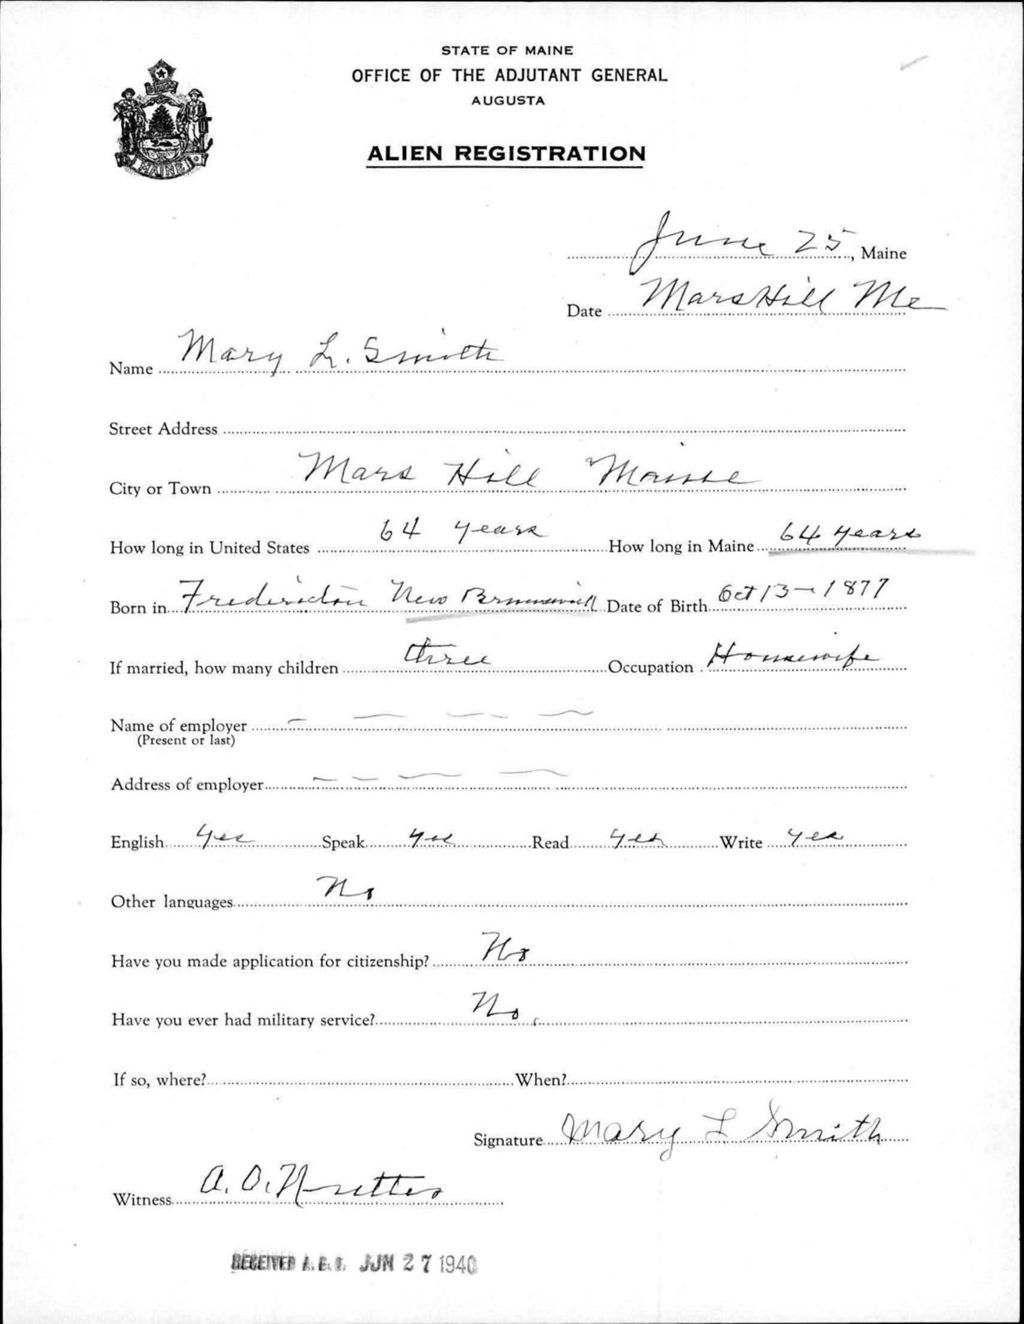 STATE OF MAINE
OFFICE OF THE ADJUTANT GENERAL
AUGUSTA
ALIEN REGISTRATION
MAINE
June 25, Maine
Date Mars Hill Me
Name Mary L. Smith
Street Address
City or Town Mars Hill Maine
How long in United States 64 years How long in Maine 64 years
Born in Fredericton New Brunswick Date of Birth Oct 13 - 1877
If married, how many children three Occupation Housewife
Name of employer
(Present or last)
Address of employer
English yes Speak yes Read yes Write yes
Other languages No
Have you made application for citizenship? No
Have you ever had military service? No
If so, where? When?
Signature Mary L Smith
Witness A. O.
RECEIVED A.G.O. JUN 27 1940